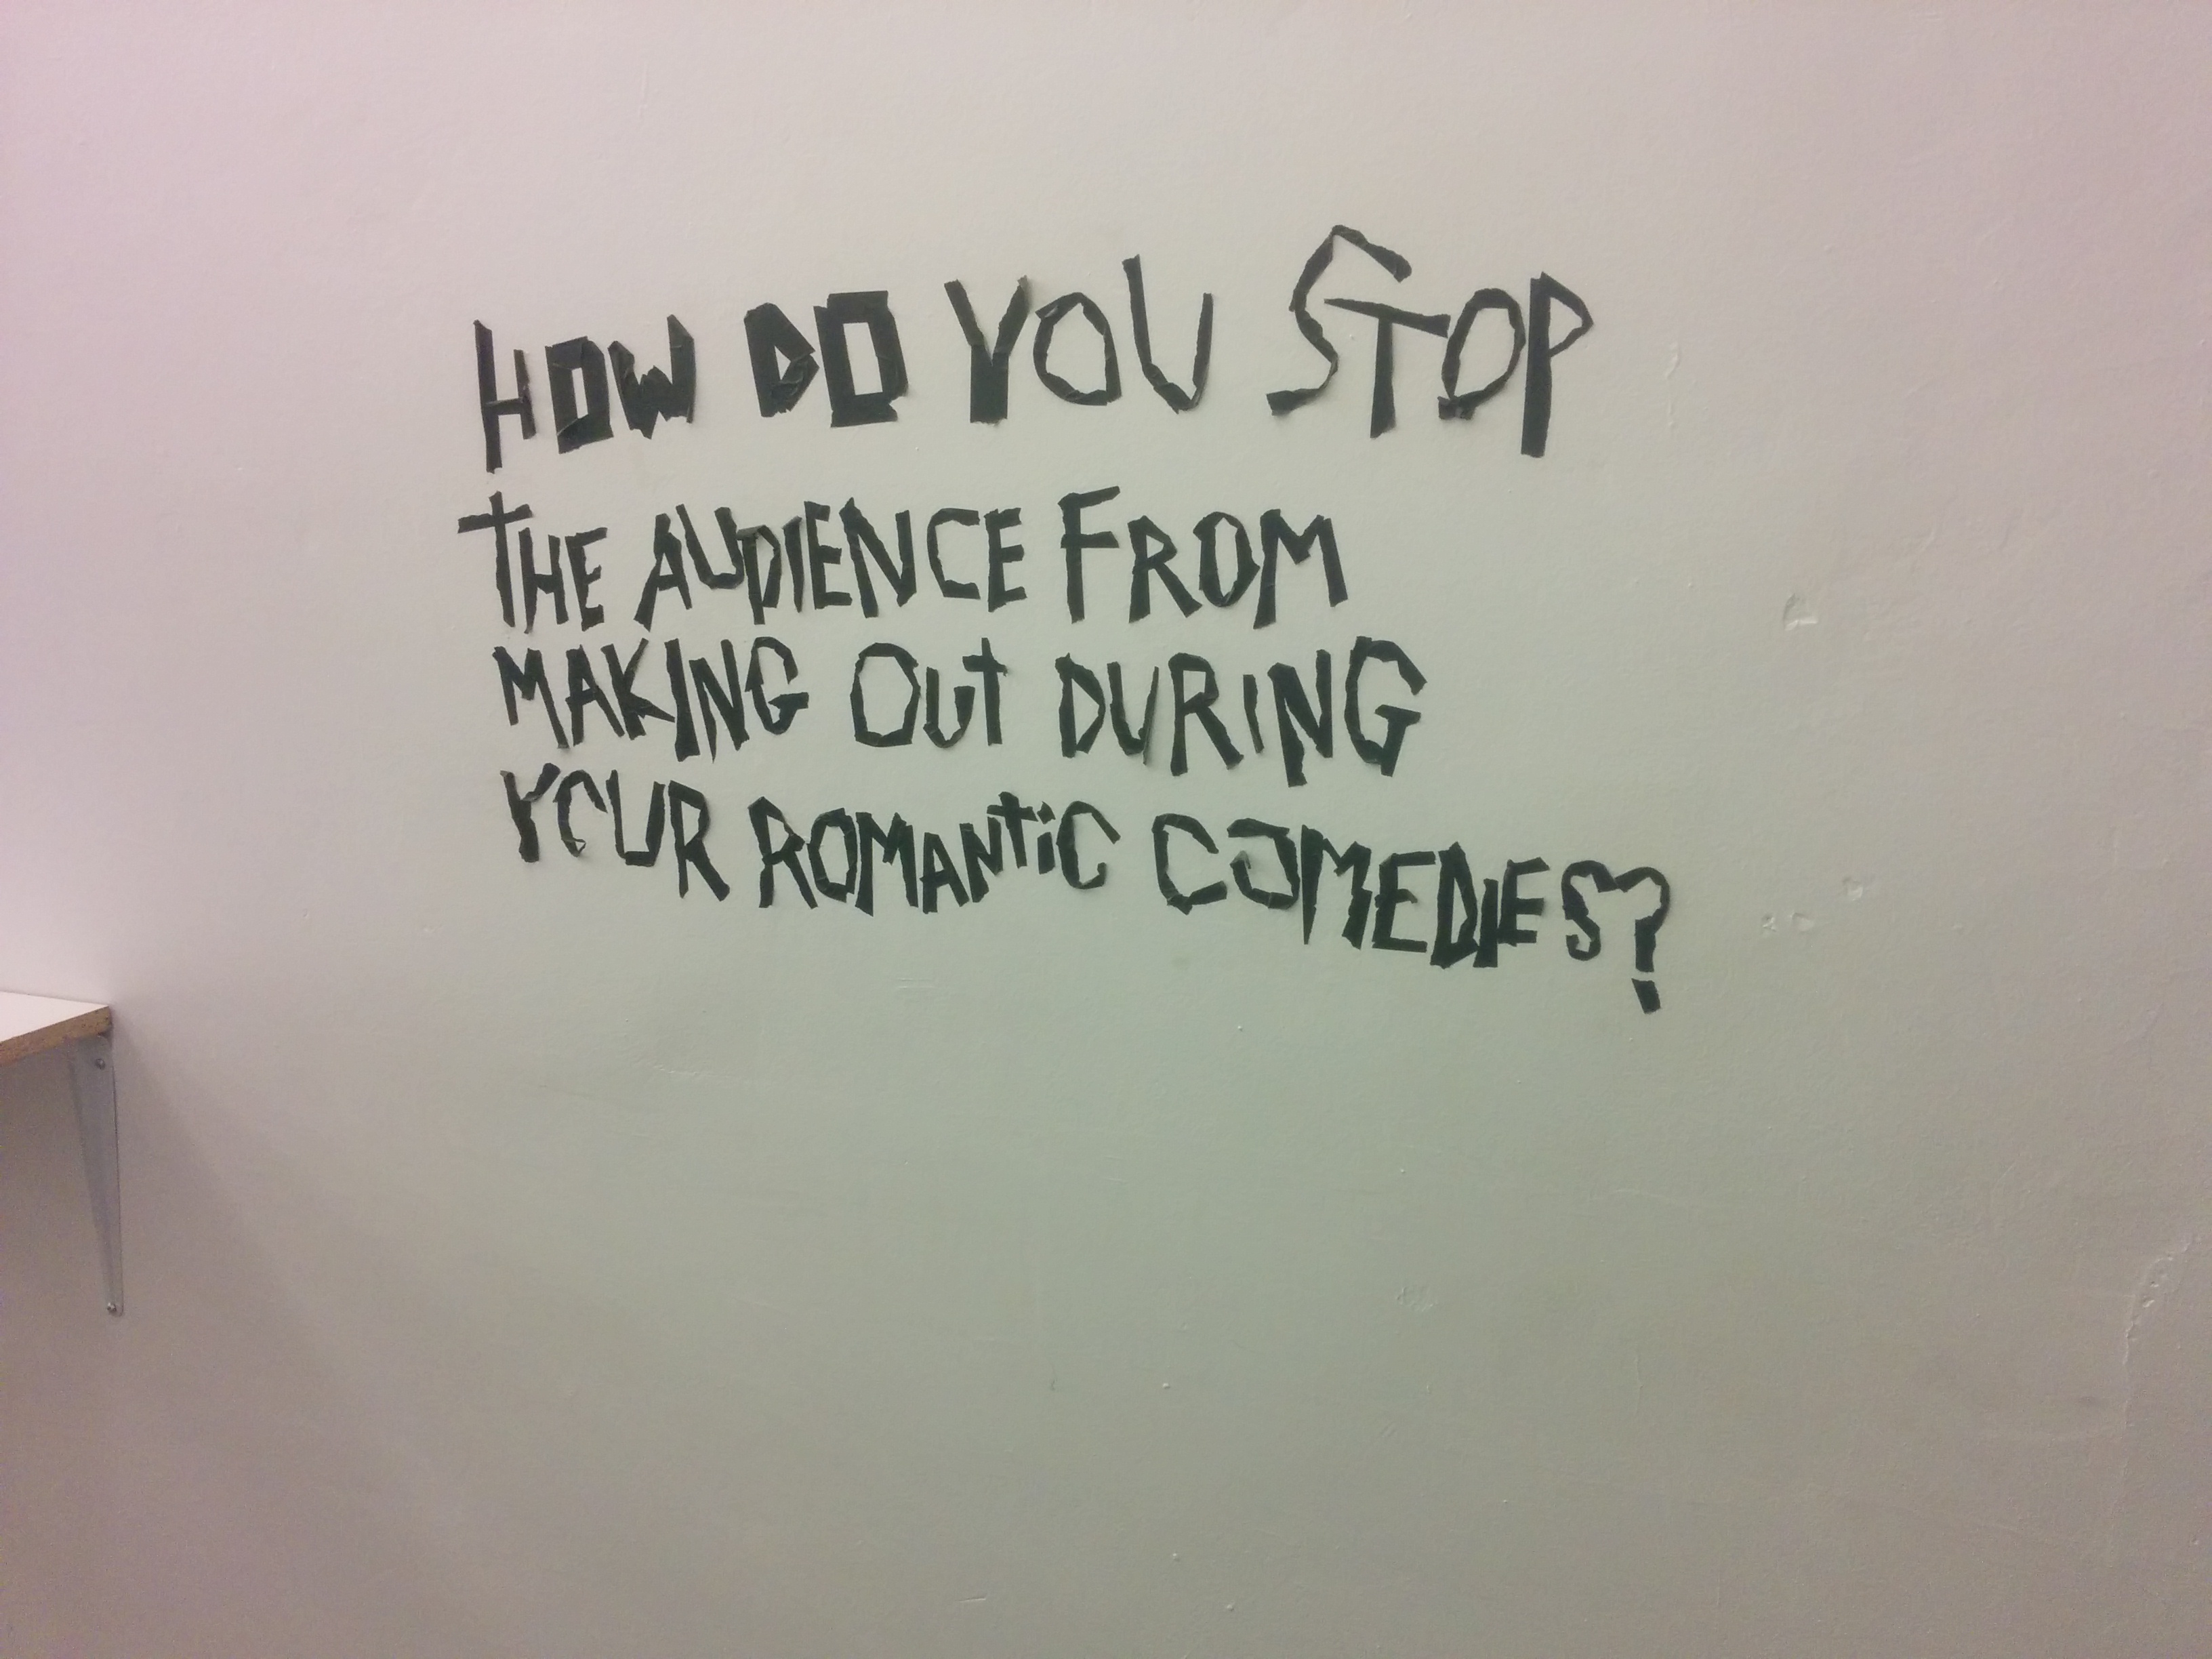 HOW DO YOU STOP
THE AUDIENCE FROM
MAKING OUT DURING
YOUR ROMANTiC COMEDIES?